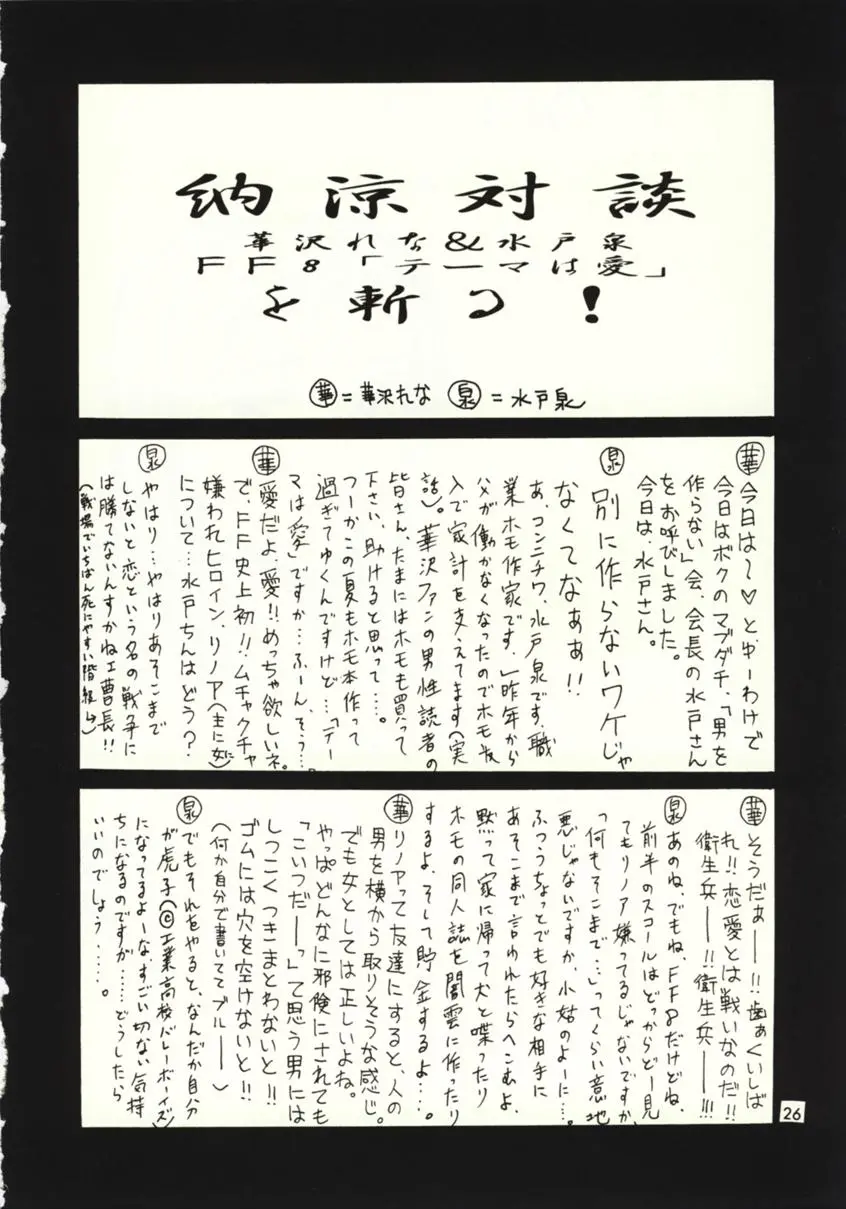 納涼対談
華沢れな&水戸泉
FF8「テーマは愛」
を斬る!
華=華沢れな 泉=水戸泉
華 今日は〜♡と、ゆーわけで
今日はボクのマブダチ、「男を
作らない」会、会長の水戸さん
をお呼びしました。
今日は、水戸さん。
泉 別に作らないワケじゃ
なくてなぁぁ!!
あ、コンニチワ、水戸泉です。職
業ホモ作家です。(昨年から
父が働かなくなったのでホモ収
入で家計を支えてます(実
話)。華沢ファンの男性読者の
皆さん、たまにはホモも買って
下さい、助けると思って…。
つーかこの夏もホモ本作って
過ぎてゆくんですけど…「テー
マは愛」ですか…ふーん、そう…。
華 愛だよ、愛!!めっちゃ欲しいネ。
で、FF史上初!!ムチャクチャ
嫌われヒロイン、リノア(主に女に)
について…水戸ちんはどう?
泉 やはり…やはりあそこまで
しないと恋という名の戦争に
は勝てないんすかね工曹長!!
(戦場でいちばん死にやすい階級らし)
華 そうだぁー!!歯ぁくいしば
れ!!恋愛とは戦いなのだ!!
衛生兵ー!!衛生兵ー!!!
泉 あのね、でもね、FF8だけどね、
前半のスコールはどっからどー見
てもリノア嫌ってるじゃないですか、
「何もそこまで…」ってくらい意地
悪じゃないですか、小姑のよーに…。
ふつうちょっとでも好きな相手に
あそこまで言われたらへこむよ、
黙って家に帰って犬と喋ったり
ホモの同人誌を闇雲に作ったり
するよ、そして貯金するよ…。
華 リノアって友達にすると、人の
男を横から取りそうな感じ。
でも女としては正しいよね。
やっぱどんなに邪険にされても
「こいつだーっ」て思う男には
しつこくつきまとわないと!!
ゴムには穴を空けないと!!
(何か自分で書いててブルー)
泉 でもそれをやると、なんだか自分
が虎子(©工業高校バレーボーイズ)
になってるよーな、すごい切ない気持
ちになるのですが……どうしたら
いいのでしょう……。
26